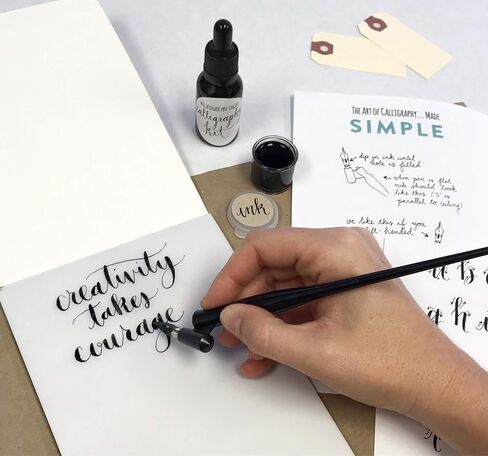 calligraphy
kit
ink
The Art of Calligraphy... Made
SIMPLE
dip in ink until
hole is filled
when pen is flat,
nib should look
like this ("S" is
parallel to ceiling)
or like this if you
creativity
takes
courage